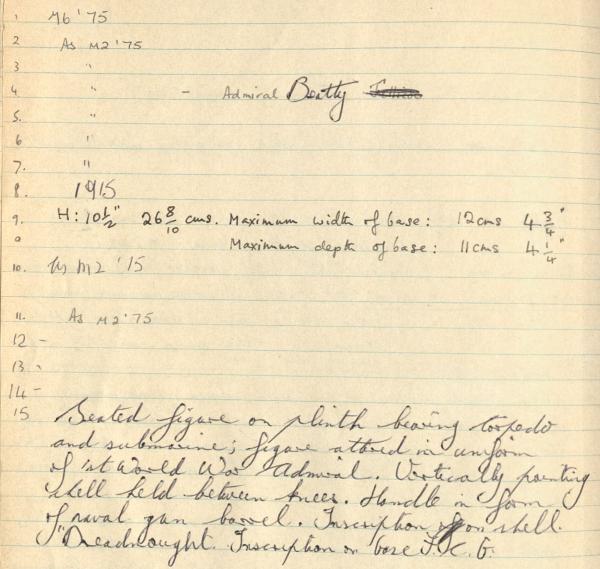 1 M6 '75
2 As M2 '75
3 "
4 " - Admiral Beatty
5. "
6 "
7. "
8. 1915
9. H: 10 1/2" 26 8/10 cms. Maximum width of base: 12 cms 4 3/4"
9 Maximum depth of base: 11 cms 4 1/4"
10. As M2 '15
11. As M2 '75
12 -
13 -
14 -
15 Seated figure on plinth bearing torpedo
and submarine; figure attired in uniform
of 1st World War Admiral. Vertically pointing
shell held between knees. Handle in form
of naval gun barrel. Inscription on shell.
"Dreadnought. Inscription on base F.C.G.